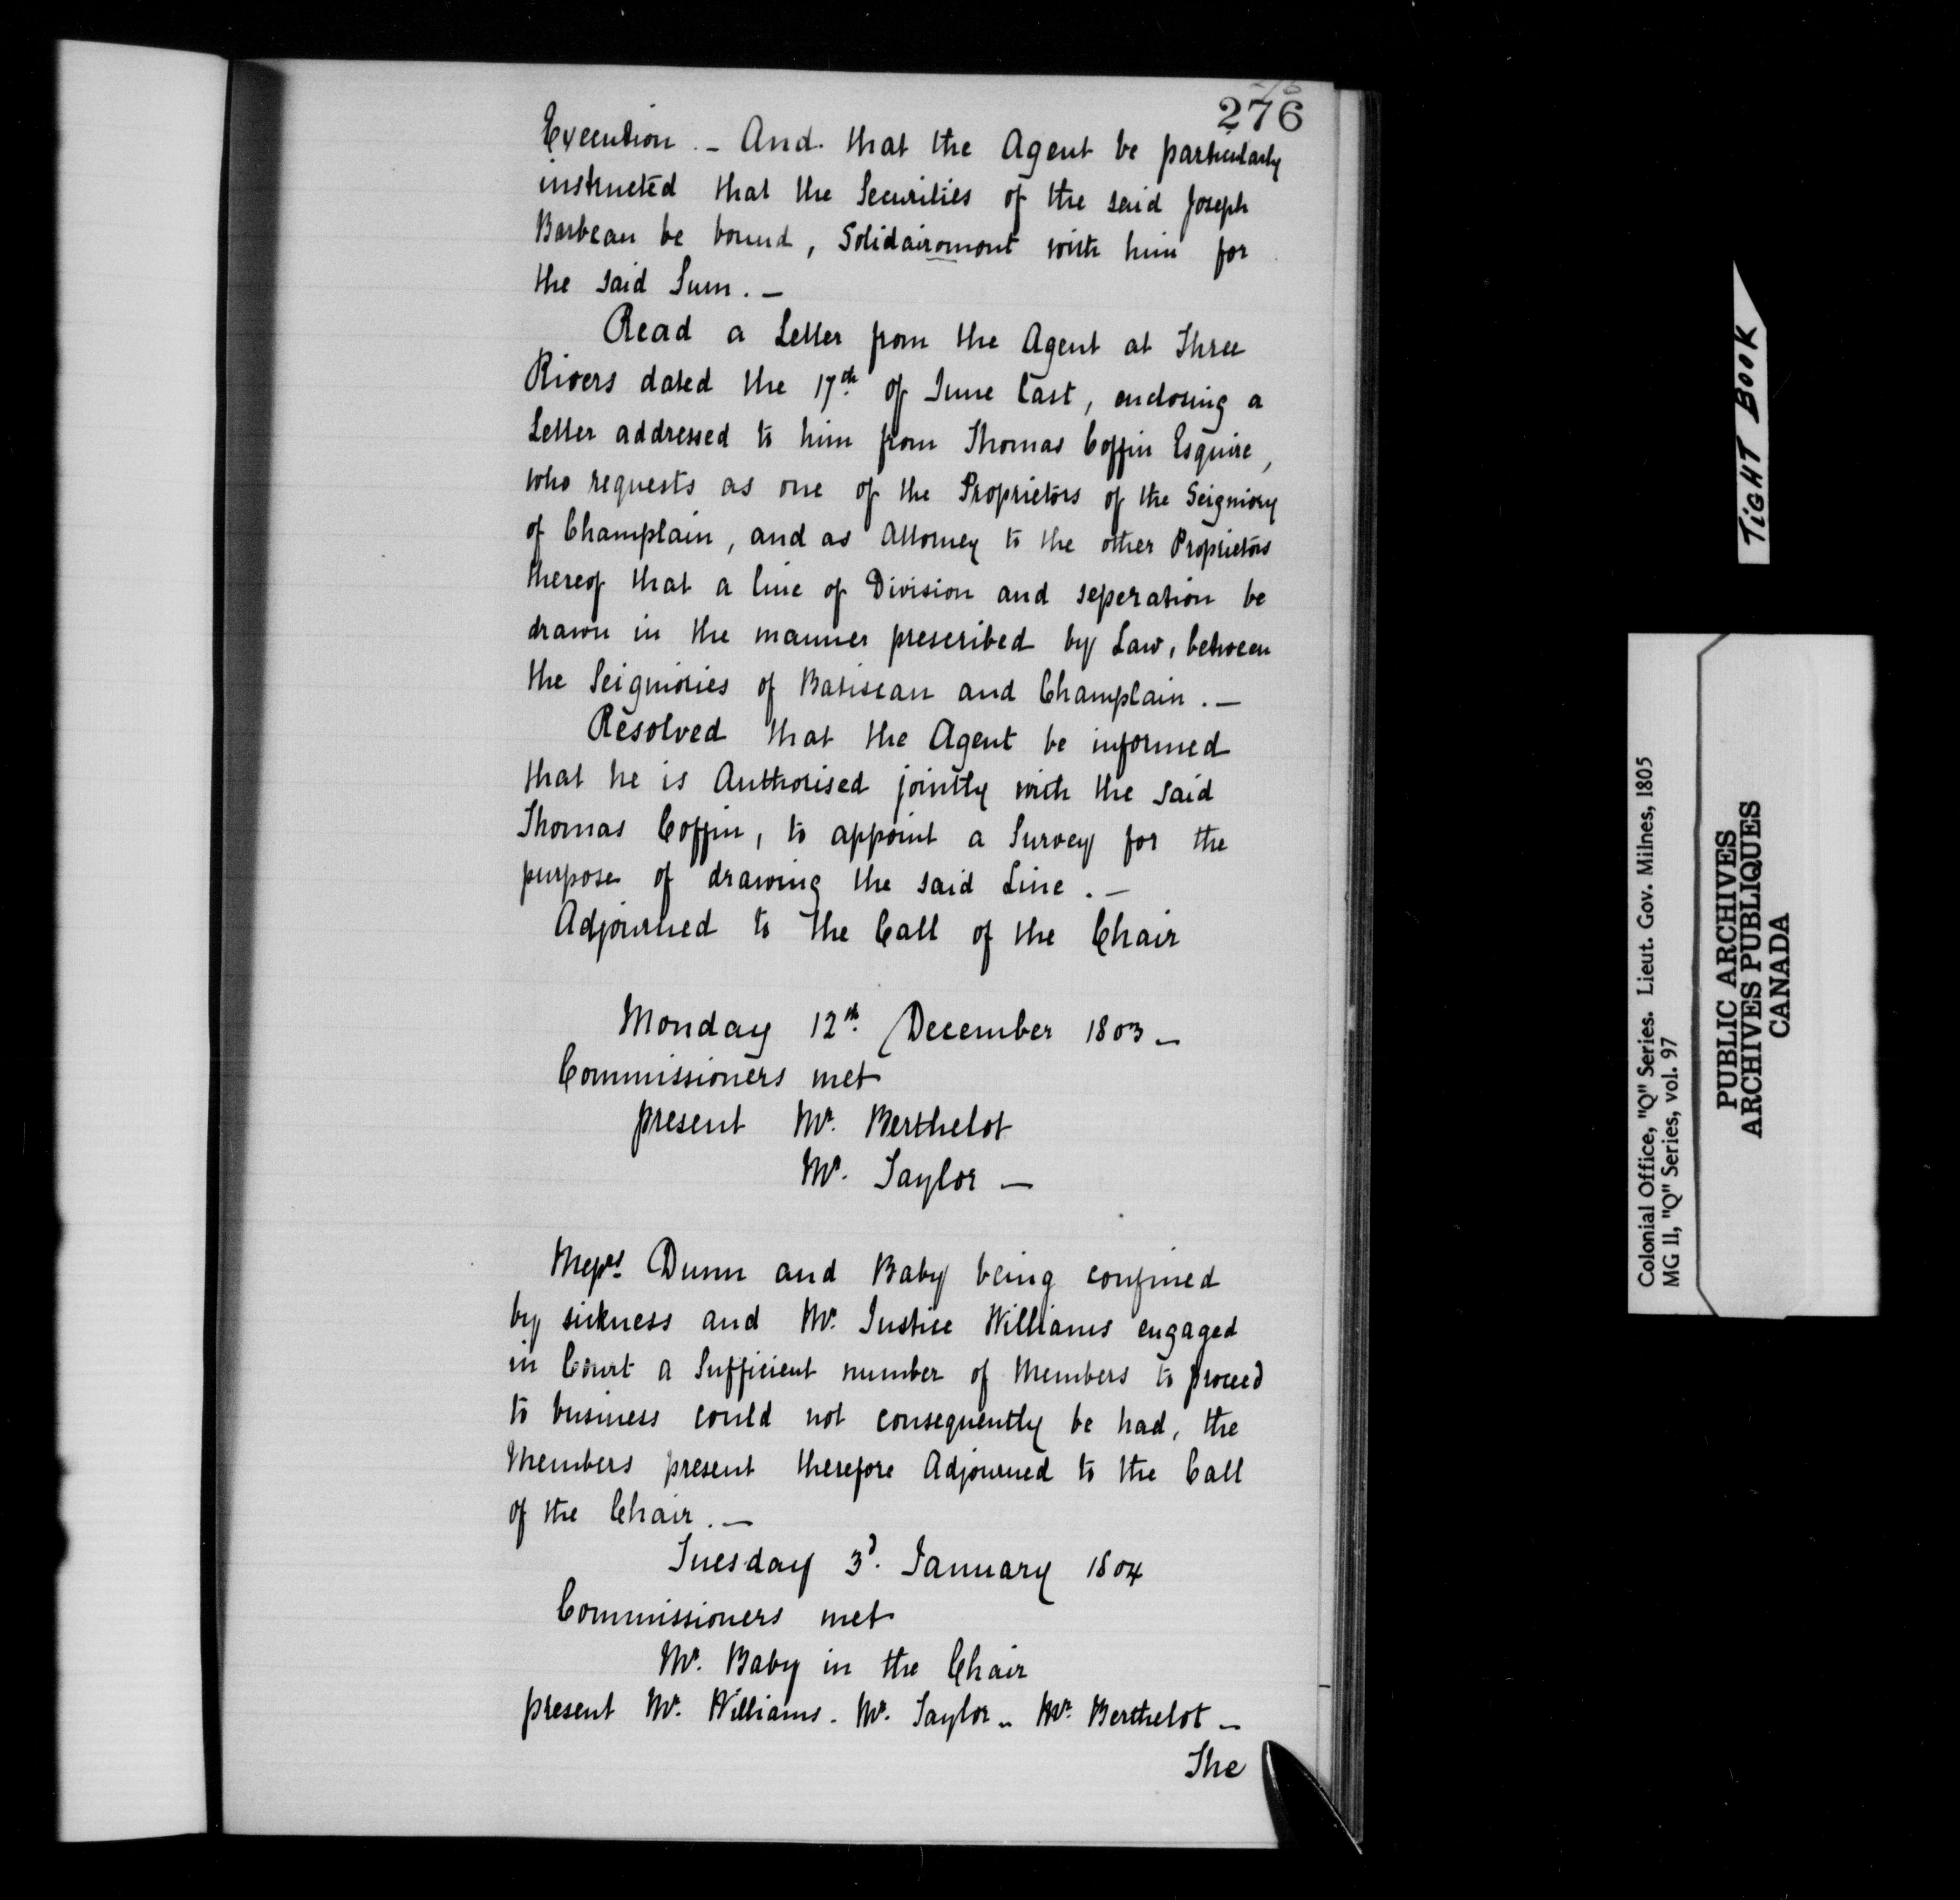 276
Execution. - And that the Agent be particularly
instructed that the Securities of the said Joseph
Barbeau be bound, Solidairomont with him for
the said Sum. -
Read a Letter from the Agent at Three
Rivers dated the 17th of June last, enclosing a
Letter addressed to him from Thomas Coffin Esquire,
who requests as one of the Proprietors of the Seigniory
of Champlain, and as Attorney to the other Proprietors
thereof that a line of Division and seperation be
drawn in the manner prescribed by Law, between
the Seigniories of Batiscan and Champlain. -
Resolved that the Agent be informed
that he is Authorised jointly with the said
Thomas Coffin, to appoint a Survey for the
purpose of drawing the said Line. -
Adjourned to the Call of the Chair
Monday 12th December 1803 -
Commissioners met
present Mr. Berthelot
Mr. Taylor -
Messrs. Dunn and Baby being confined
by sickness and Mr. Justice Williams engaged
in Court a Sufficient number of Members to proceed
to business could not consequently be had, the
Members present therefore Adjourned to the Call
of the Chair. -
Tuesday 3d. January 1804
Commissioners met
Mr. Baby in the Chair
present Mr. Williams - Mr. Taylor - Mr. Berthelot -
The
TIGHT BOOK
Colonial Office, "Q" Series. Lieut. Gov. Milnes, 1805
MG 11, "Q" Series, vol. 97
PUBLIC ARCHIVES
ARCHIVES PUBLIQUES
CANADA